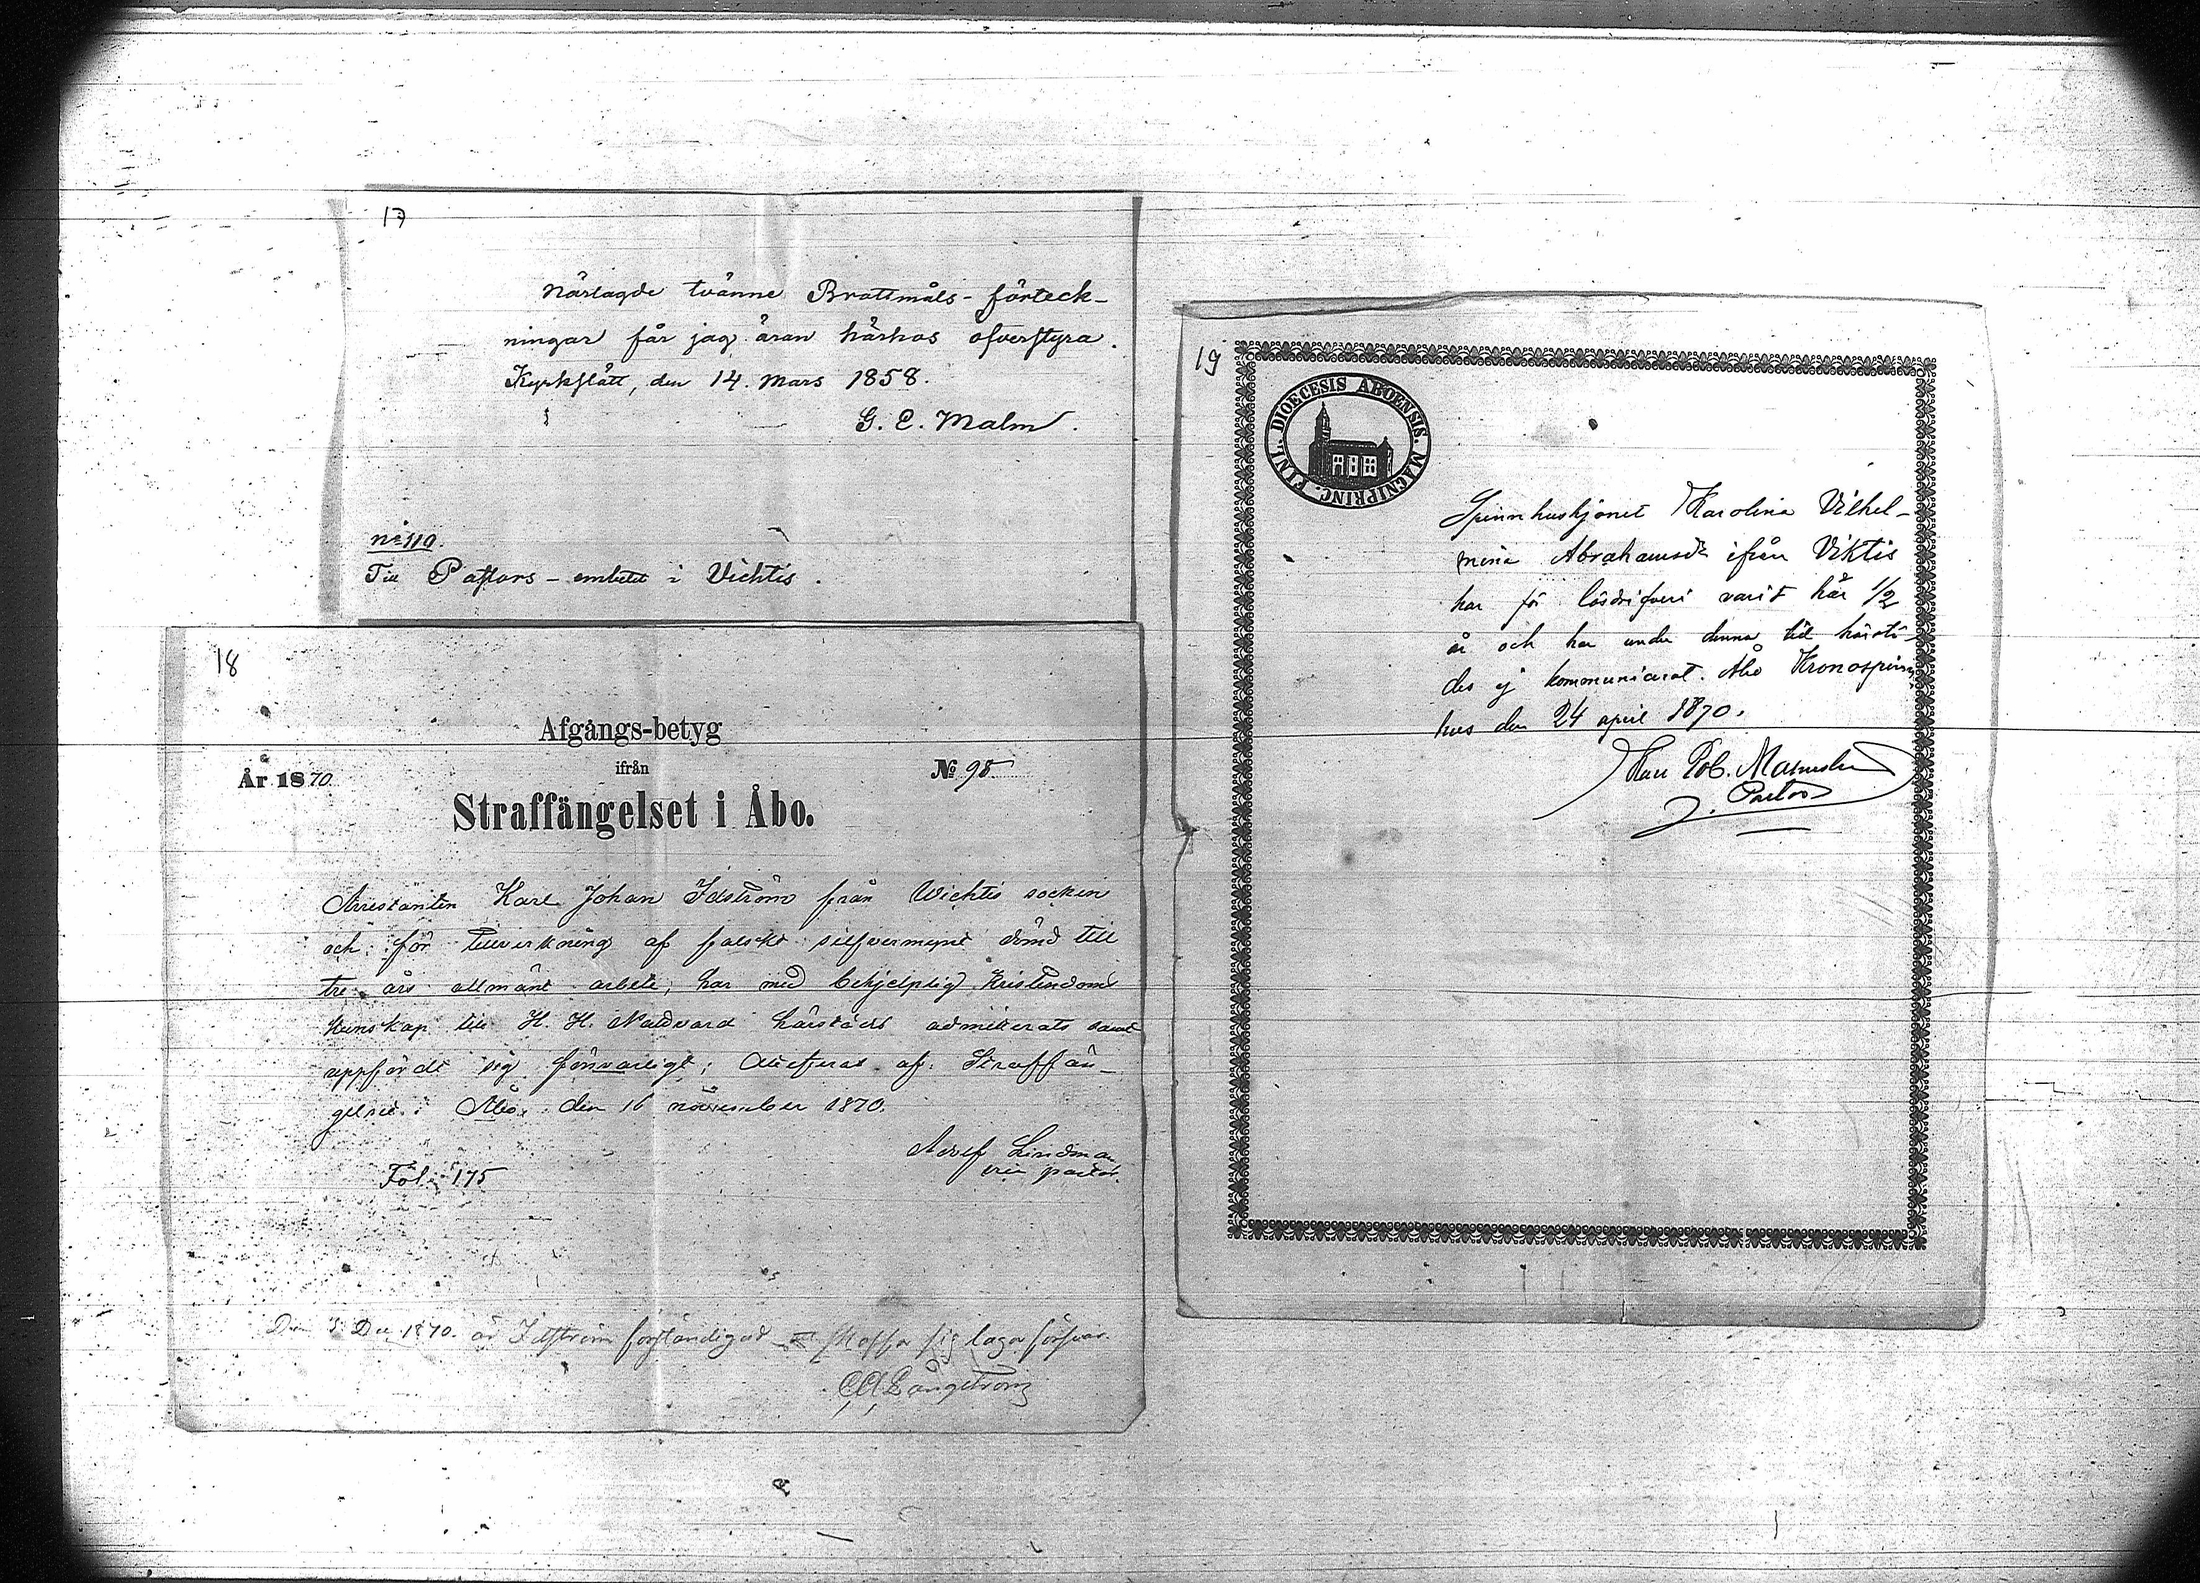 17
Närlagde tvänne Brottmåls-förteck-
ningar får jag äran härhos öfverstyra.
Kyrkslätt, den 14. Mars 1858.
G. E. Malm.
No 119.
Till Pastors-embetet i Vichtis.
18
Afgångs-betyg
ifrån
År 1870
No 98
Straffängelset i Åbo.
Arrestanten Karl Johan Idström från Wichtis socken
och för tillverkning af falskt silfvermynt dömd till
tre års allmänt arbete, har med behjelplig Kristendoms
kunskap till H. H. Nattvard härstädes admitterats samt
uppfördt sig försvarligt; Attesteras af Straffän-
gelset i Åbo, den 16 november 1870.
Adolf Lindman
vice pastor.
Fol. 175
Den 5 Dec 1870. är Idström förständigad att skaffa sig laga försvar.
19
DIOECESIS ABOENSIS. MAGNIPRINC. FINL.
Spinnhushjonet Karolina Vilhel-
mina Abrahamsdr ifrån Viktis
har för lösdrifveri varit här 1/2
år och har under denna tid härstä-
des ej kommunicerat. Åbo Kronospinn
hus den 24 april 1870.
Pastor